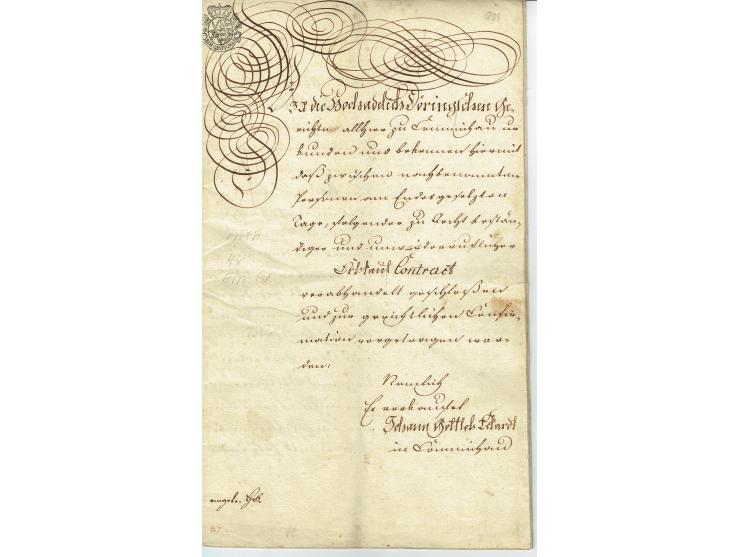 die Hochadelich Döringischen Ge-
richte allhier zu Cönnichau ur-
kunden und bekennen hiermit
daß zwischen nachbenannten
Personen am Endes gesetzten
Tage, folgender zu Recht bestän-
diger und unwiederruflicher
Erbkauf Contract
verabhandelt geschloßen
und zur gerichtlichen Confir-
mation vorgetragen wor-
den:
Nemlich
Es verkaufet
Johann Gottlob Eckardt
in Cönnichau